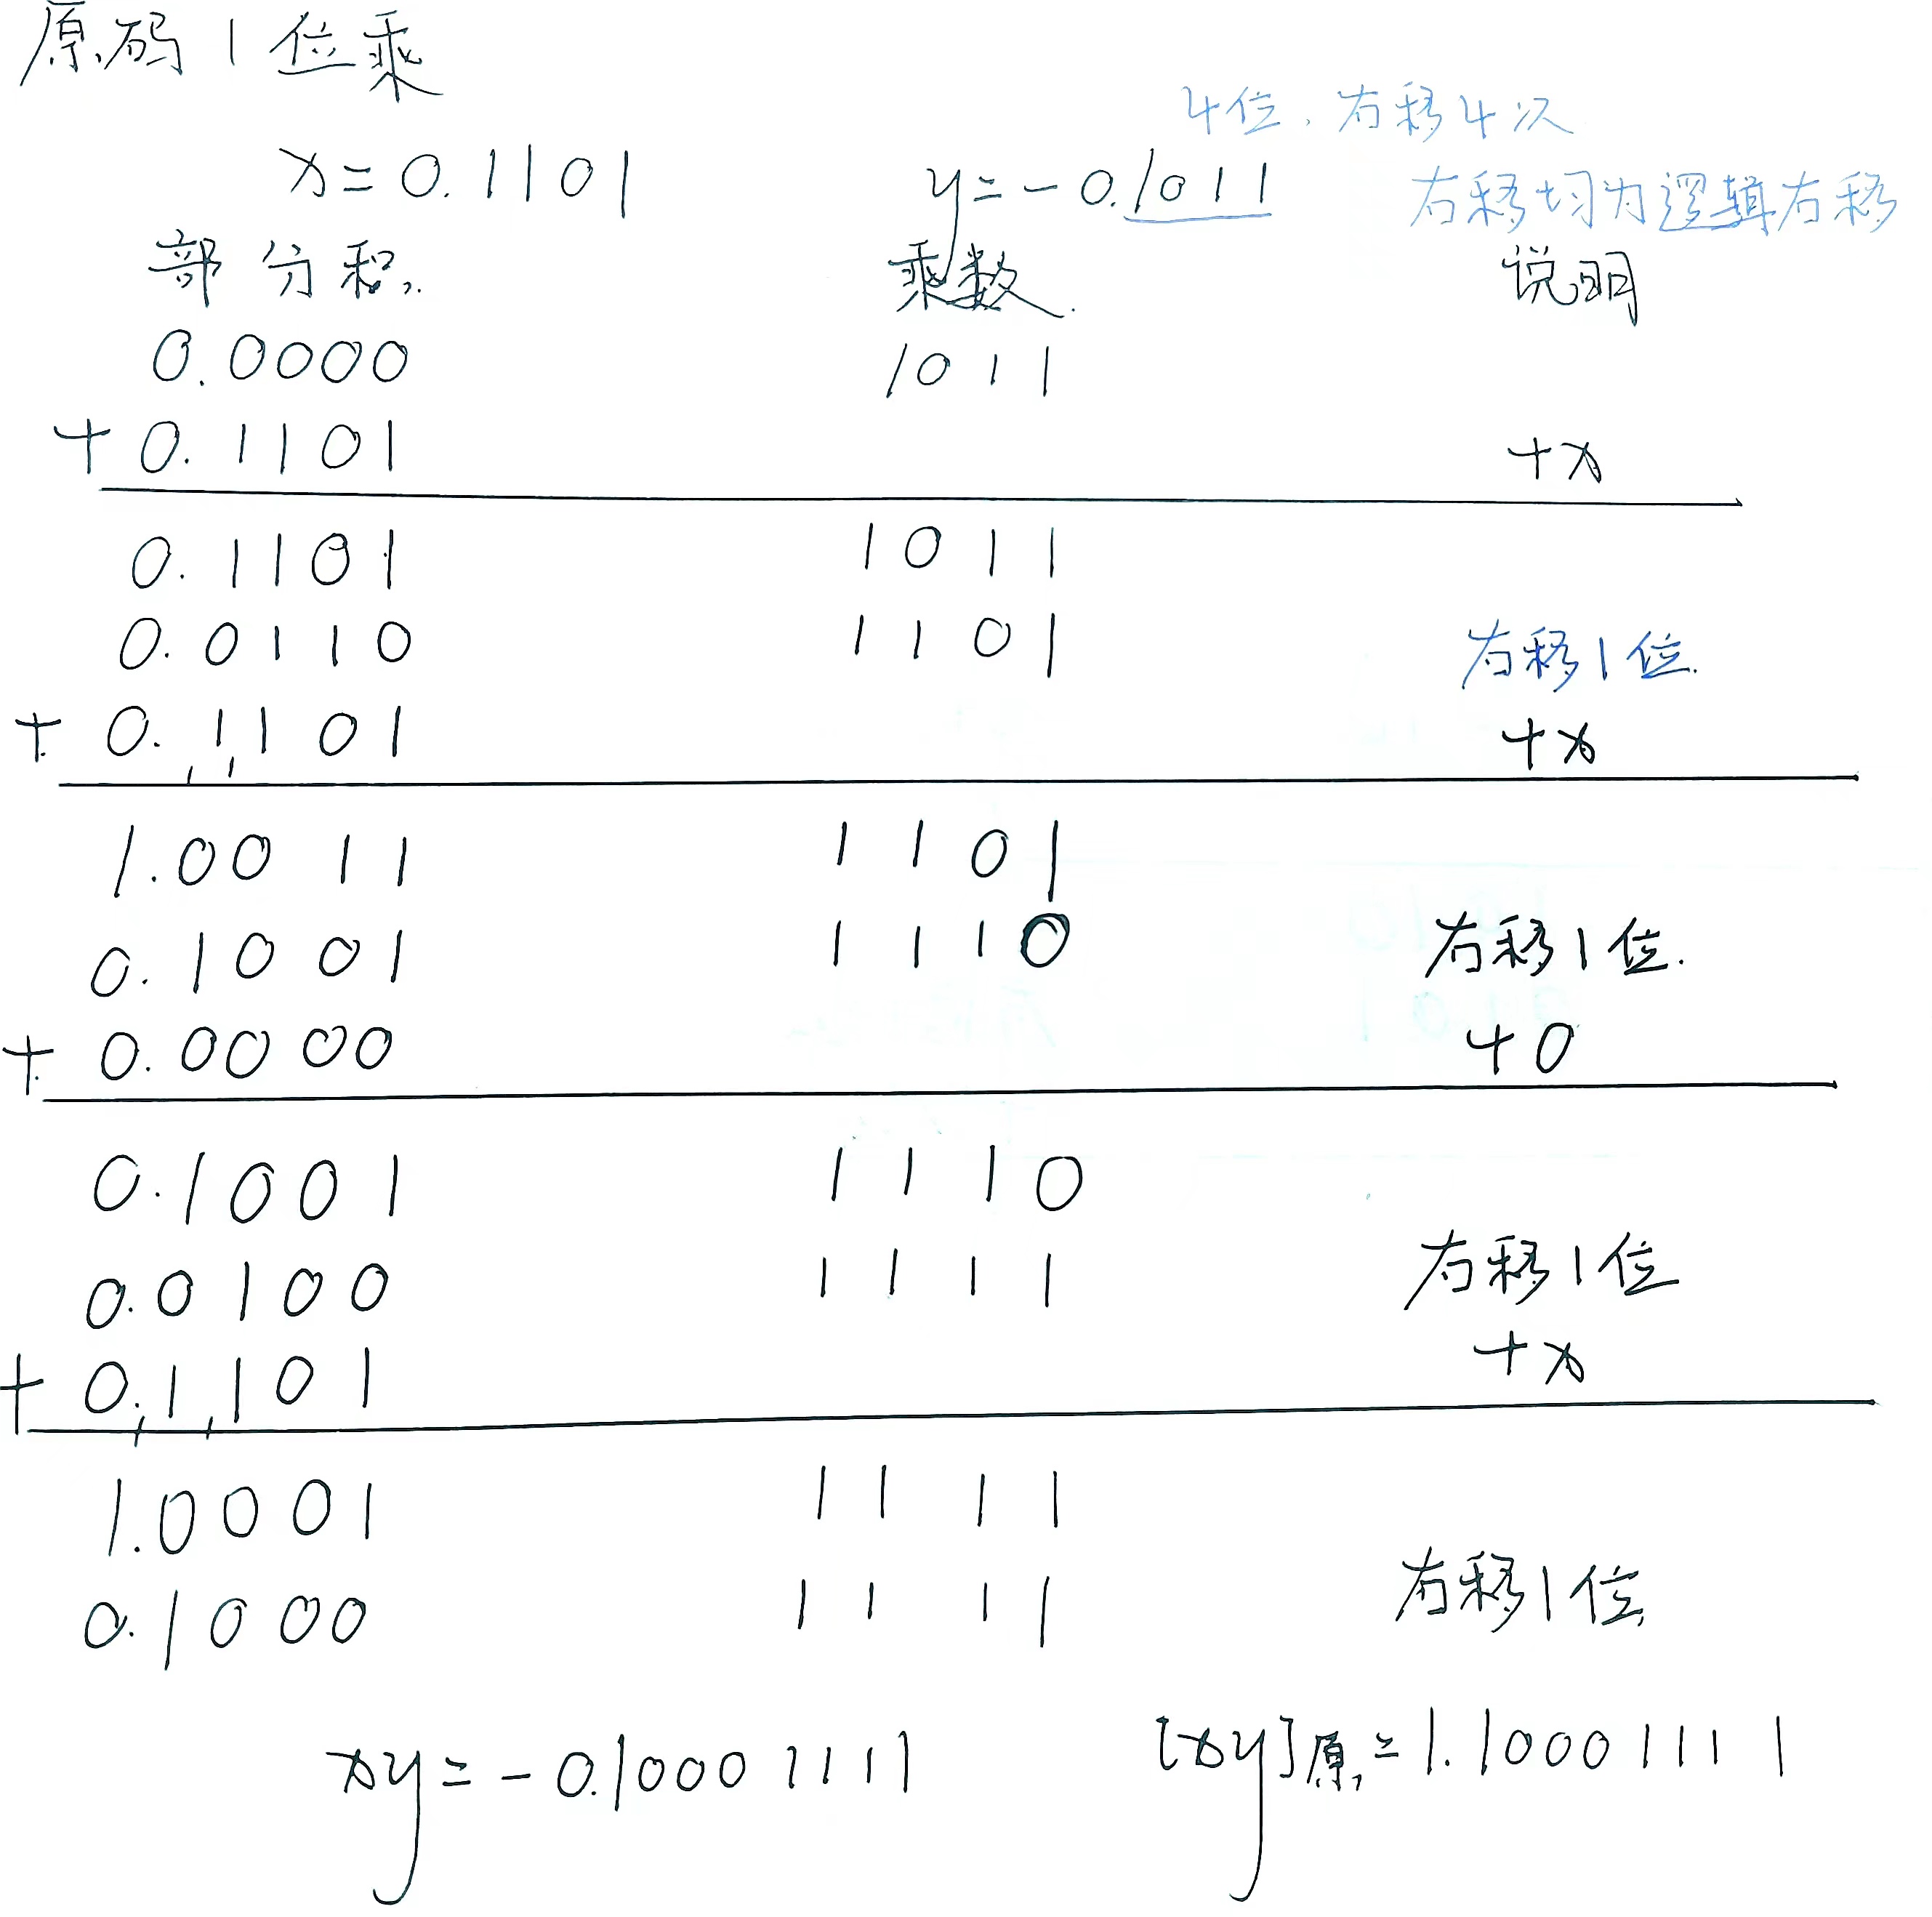 原码1位乘
4位，右移4次
x=0.1101 y=-0.1011 右移均为逻辑右移
部分积 乘数 说明
0.0000 1011
+0.1101 +x
0.1101 1011
0.0110 1101 右移1位.
+0.1101 +x
1.0011 1101
0.1001 1110 右移1位.
+0.0000 +0
0.1001 1110
0.0100 1111 右移1位
+0.1101 +x
1.0001 1111
0.1000 1111 右移1位
xy=-0.10001111 [xy]原=1.10001111